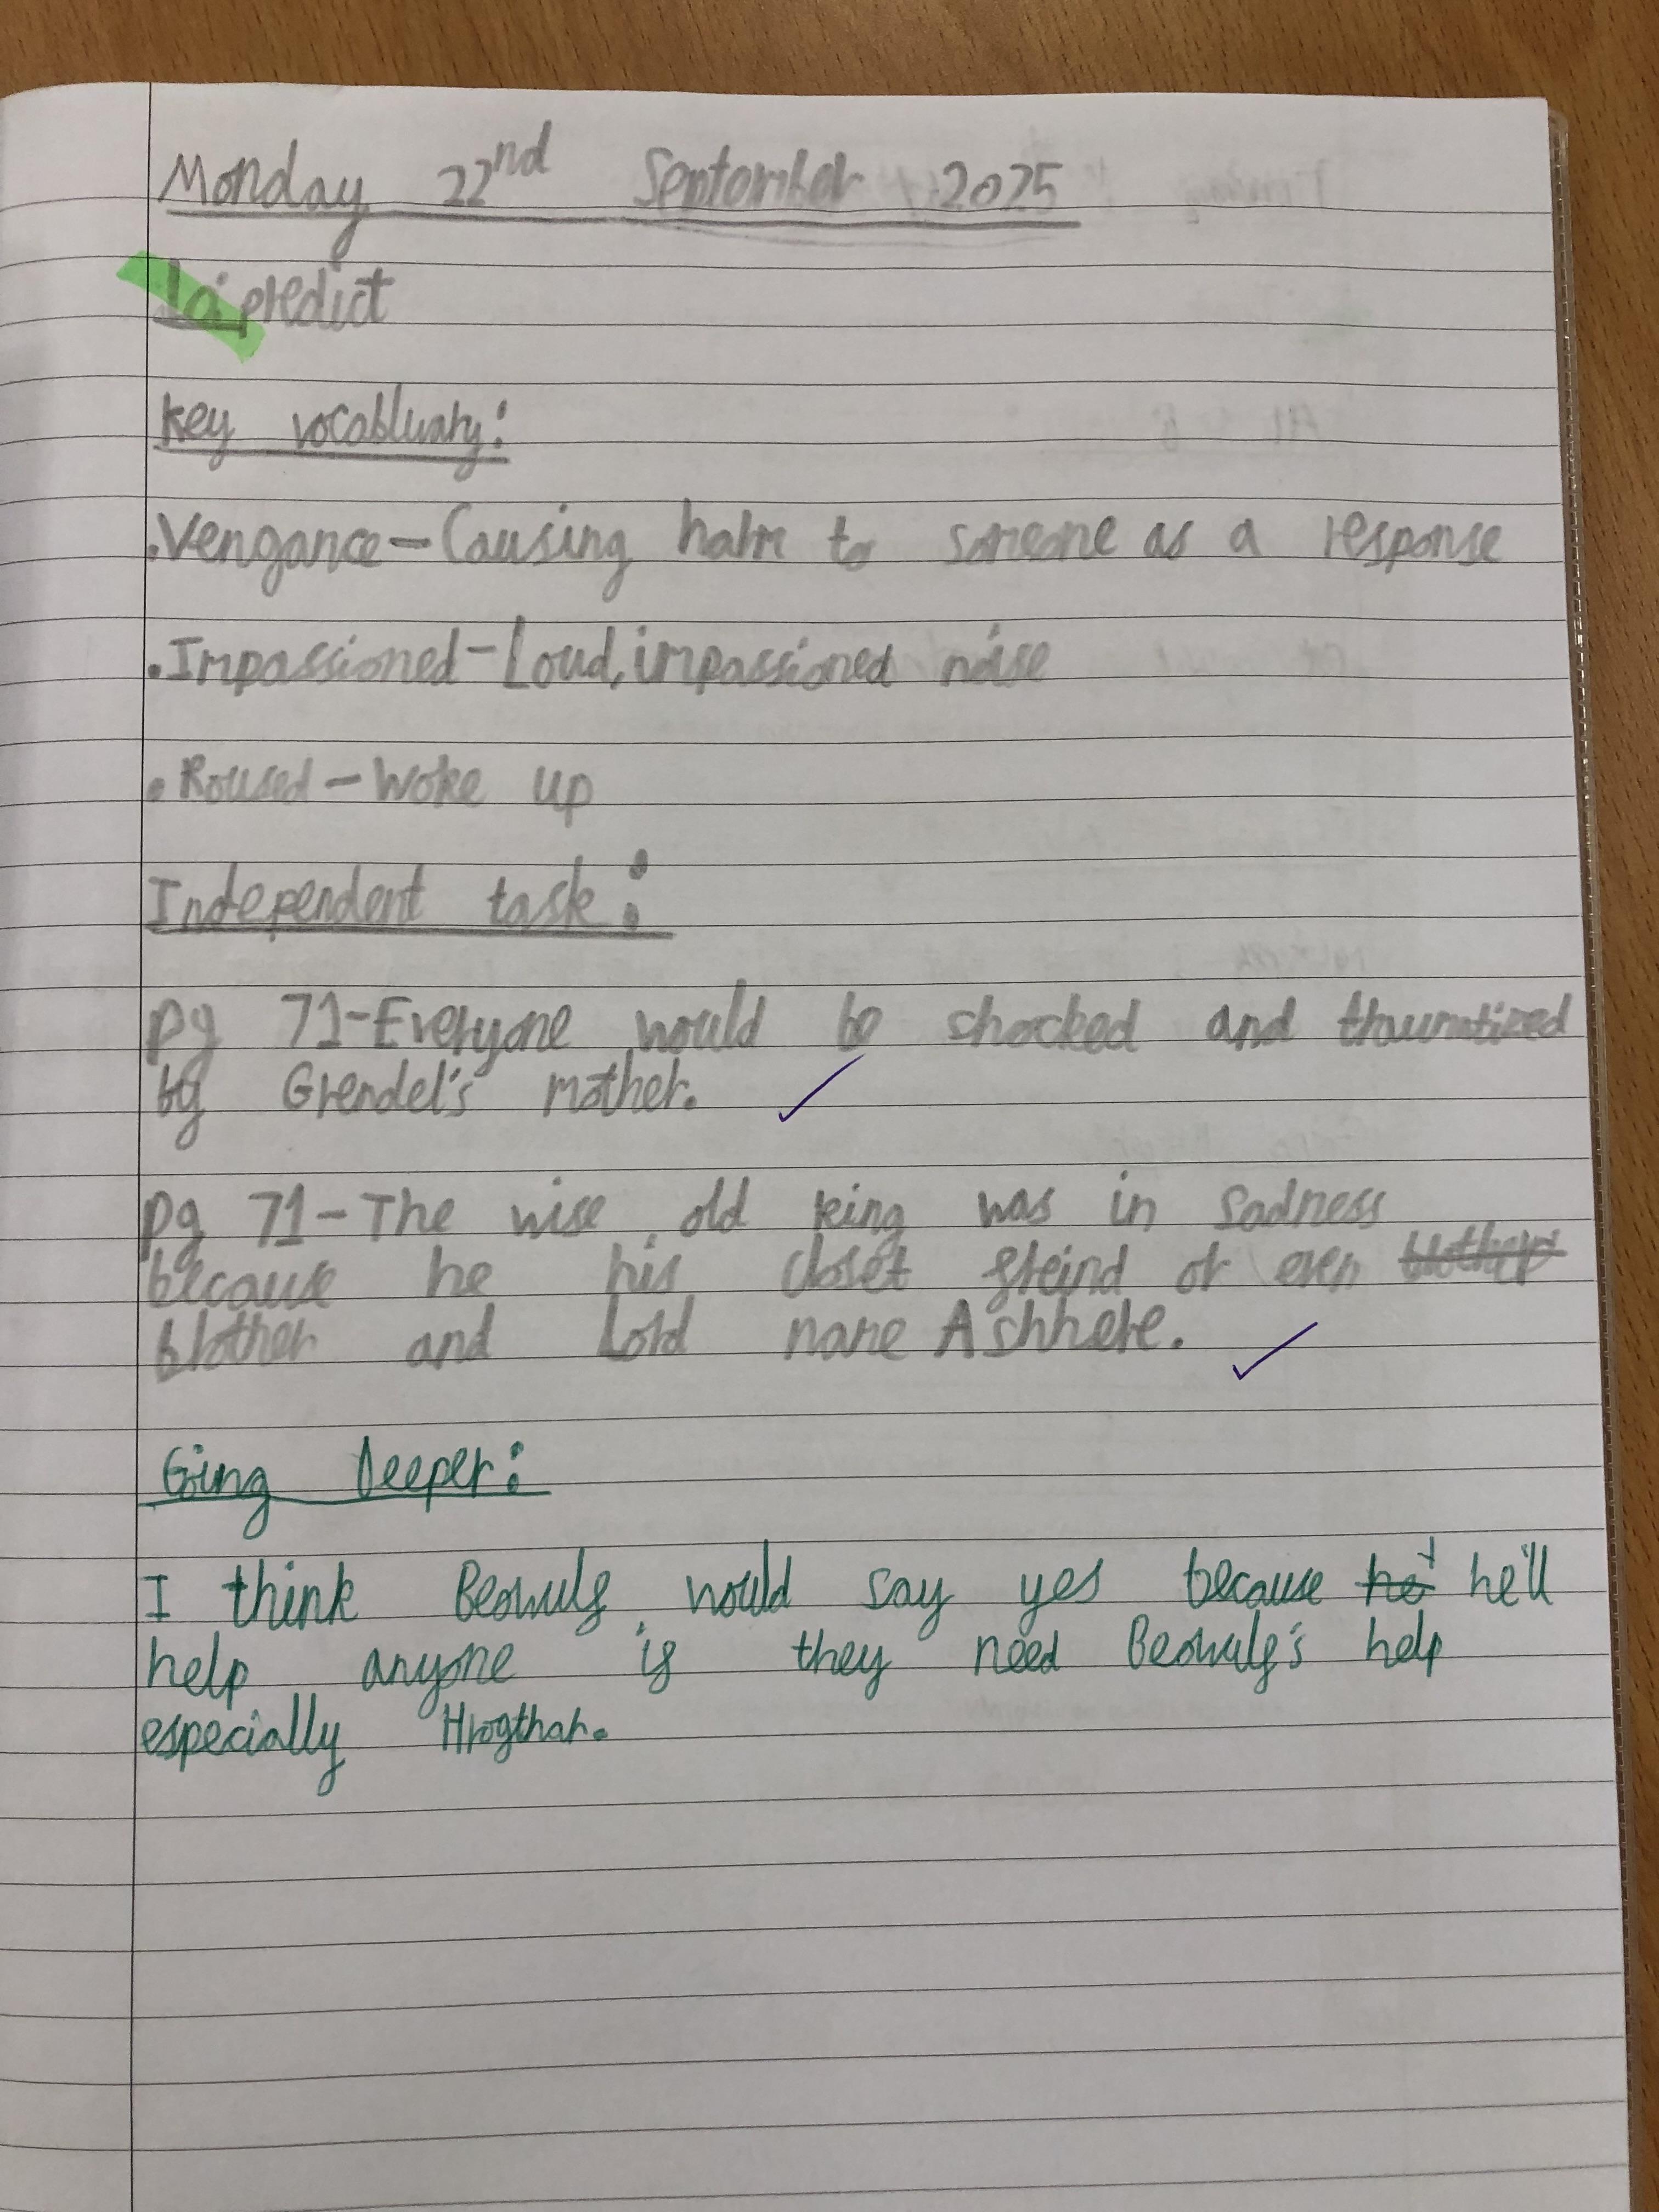 Monday 22nd September 2025
Lo: predict
Key vocabluary:
.Vengance - Causing harm to someone as a response
.Impassioned - Loud, impassioned noise
.Roused - Woke up
Independent task:
pg 71 - Everyone would be shocked and traumatized
by Grendel's mother.
pg 71 - The wise, old king was in sadness
because he his closet freind or even brother
brother and Lord name Ashhere.
Going Deeper:
I think Beowulf would say yes because he'll
help anyone if they need Beowulf's help
especially Hrogthar.